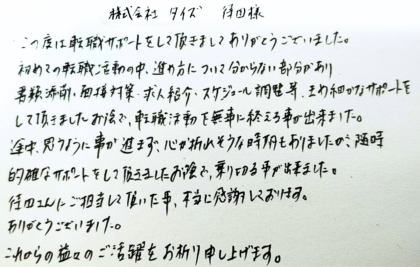 株式会社 タイズ 待田様
この度は転職サポートをして頂きましてありがとうございました。
初めての転職活動の中、進め方について分からない部分があり
書類添削・面接対策・求人紹介・スケジュール調整等、きめ細かなサポートを
して頂きましたお陰で、転職活動を無事に終える事が出来ました。
途中、思うように事が進まず、心が折れそうな時期もありましたので、随時
的確なサポートをして頂きましたお陰で、乗り切る事が出来ました。
待田さんにご担当して頂いた事、本当に感謝しております。
ありがとうございました。
これからの益々のご活躍をお祈り申し上げます。